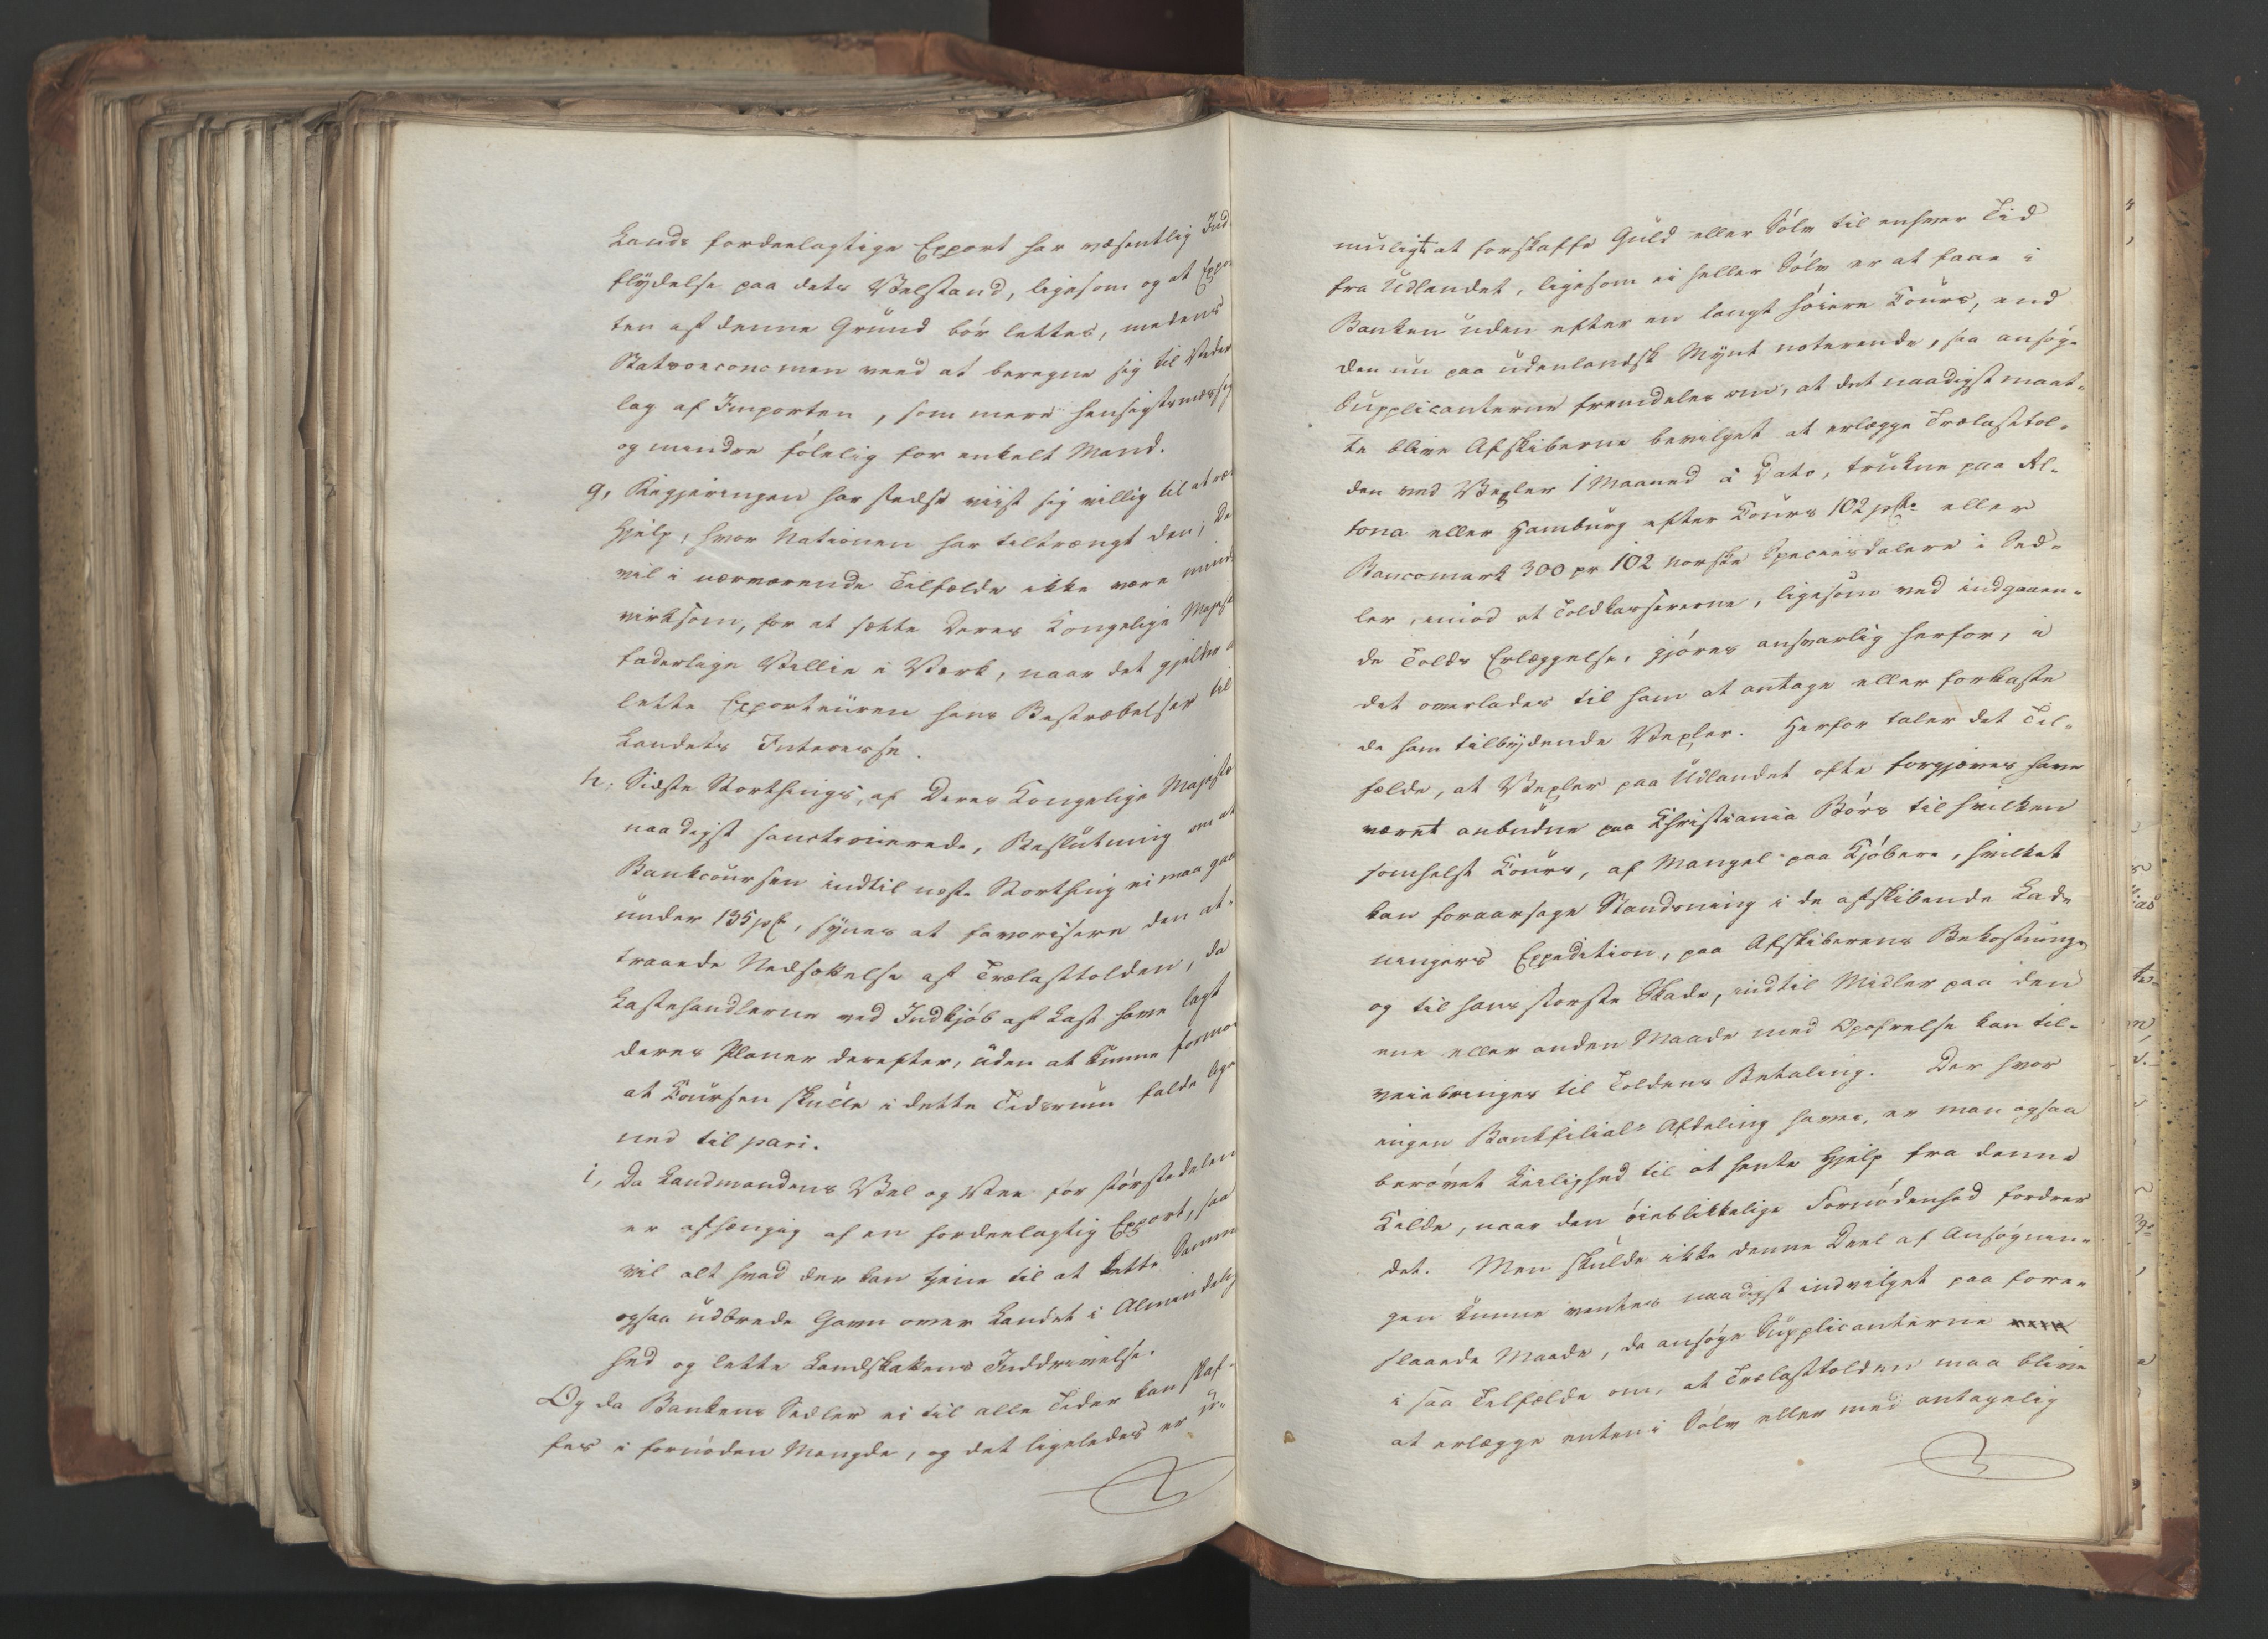 Lands fordeelagtige Export har væsentlig Ind-
flydelse paa dets Velstand, ligesom og at Expor
ten af denne Grund bør lettes, medens
Statsoeconomen veed at beregne sig til Veder
lag af Importen, som mere hensigtsmæssig
og mindre følelig for enkelt Mand.
g, Regjeringen har stedse viist sig villig til at
Hjelp, hvor Nationen har tiltrængt den; De
vil i nærværende Tilfælde ikke være mind
virksom, for at sætte Deres Kongelige Majest
faderlige Villie i Værk, naar det gjelder a
lette Exporteuren hans Bestræbelser til
Landets Interesse.
h, Sidste Storthings, af Deres Kongelige Majestæ
naadigst sanctionerede, Beslutning om at
Bankcoursen indtil næste Storthing ei maa gaa
under 135 pCt, synes at favorisere den at-
traaede Nedsættelse af Trælasttolden, da
Lasthandlerne ved Indkjøb af Last have lagt
deres Planer derefter, uden at kunne formo
at Coursen skulle i dette Tidsrum falde lige
ned til pari.
i, Da Landmandens Vel og Vee for størstedelen
er afhængig af en fordeelagtig Export, saa
vil alt hvad der kan tjene til at lette Samme
ogsaa udbrede Gavn over Landet i Almindelig
hed og lette Landskatens Inddrivelse.
Og da Bankens Sedler ei til alle Tider kan skaf-
fes i fornøden Mengde, og det ligeledes er u-
muligt at forskaffe Guld eller Sølv til enhver Tid
fra Udlandet, ligesom ei heller Sølv er at faae i
Banken uden efter en langt høiere Cours, end
den nu paa udenlandsk Mynt noterende, saa ansøge
Supplicanterne fremdeles om, at det naadigst maat-
te blive Afskiberne bevilget at erlægge Trælasttol-
den ved Vexler 1 Maaned à Dato, trukne paa Al-
tona eller Hamburg efter Cours 102 pCt. eller
Bancomark 300 pr 102 norske Speciesdalere i Sed-
ler, imod at Toldkassererne, ligesom ved indgaaen-
de Tolds Erlæggelse, gjøres ansvarlig herfor, i
det overlades til ham at antage eller forkaste
de ham tilbydende Vexler. Herfor taler det Til-
fælde, at Vexler paa Udlandet ofte forgjæves have
været anbudne paa Christiania Børs til hvilken
somhelst Cours, af Mangel paa Kjøbere, hvilket
kan foraarsage Standsning i de afskibende Lad-
ningers Expedition, paa Afskiberens Bekostning
og til hans største Skade, indtil Midler paa den
ene eller anden Maade med Opofrelse kan til-
veiebringes til Toldens Betaling. Der hvor
ingen Bankfilial-Afdeling haves, er man ogsaa
berøvet Leilighed til at hente Hjelp fra denne
Kilde, naar den øieblikkelige Fornødenhed fordrer
det. Men skulde ikke denne Deel af Ansøgnin-
gen kunne ventes naadigst indvilget paa fore-
slaaede Maade, da ansøge Supplicanterne
i saa Tilfælde om, at Trælasttolden maa blive
at erlægge enten i Sølv eller med antagelig